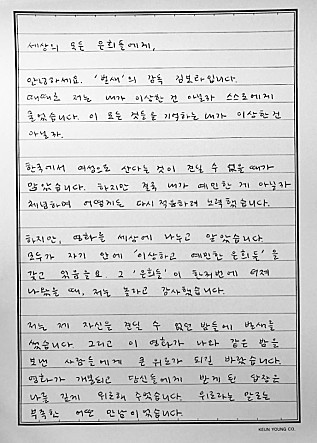 세상의 모든 은희들에게,
안녕하세요. '벌새'의 감독 김보라입니다.
때때로 저는 내가 이상한 건 아닐까 스스로에게
물었습니다. 이 모든 것들을 기억하는 내가 이상한 건
아닐까.
한국에서 여성으로 산다는 것이 견딜 수 없을 때가
많았습니다. 하지만 결국 내가 예민한 게 아닐까
체념하며 어떻게든 다시 적응하려 노력했습니다.
하지만, 영화를 세상에 나누고 알았습니다.
모두가 자기 안에 '이상하고 예민한 은희들'을
갖고 있음을요. 그 '은희들'이 한꺼번에 어제
나왔을 때, 저는 놀라고 감사했습니다.
저는 제 자신을 견딜 수 없던 밤들에 벌새를
썼습니다. 그리고 이 영화가 나와 같은 밤을
보낸 사람들에게 큰 위로가 되길 바랐습니다.
영화가 개봉되고 당신들에게 받게 된 답장은
나를 깊게 위로해 주었습니다. 위로라는 말로는
부족한 어떤 만남이었습니다.
KEUN YOUNG CO.